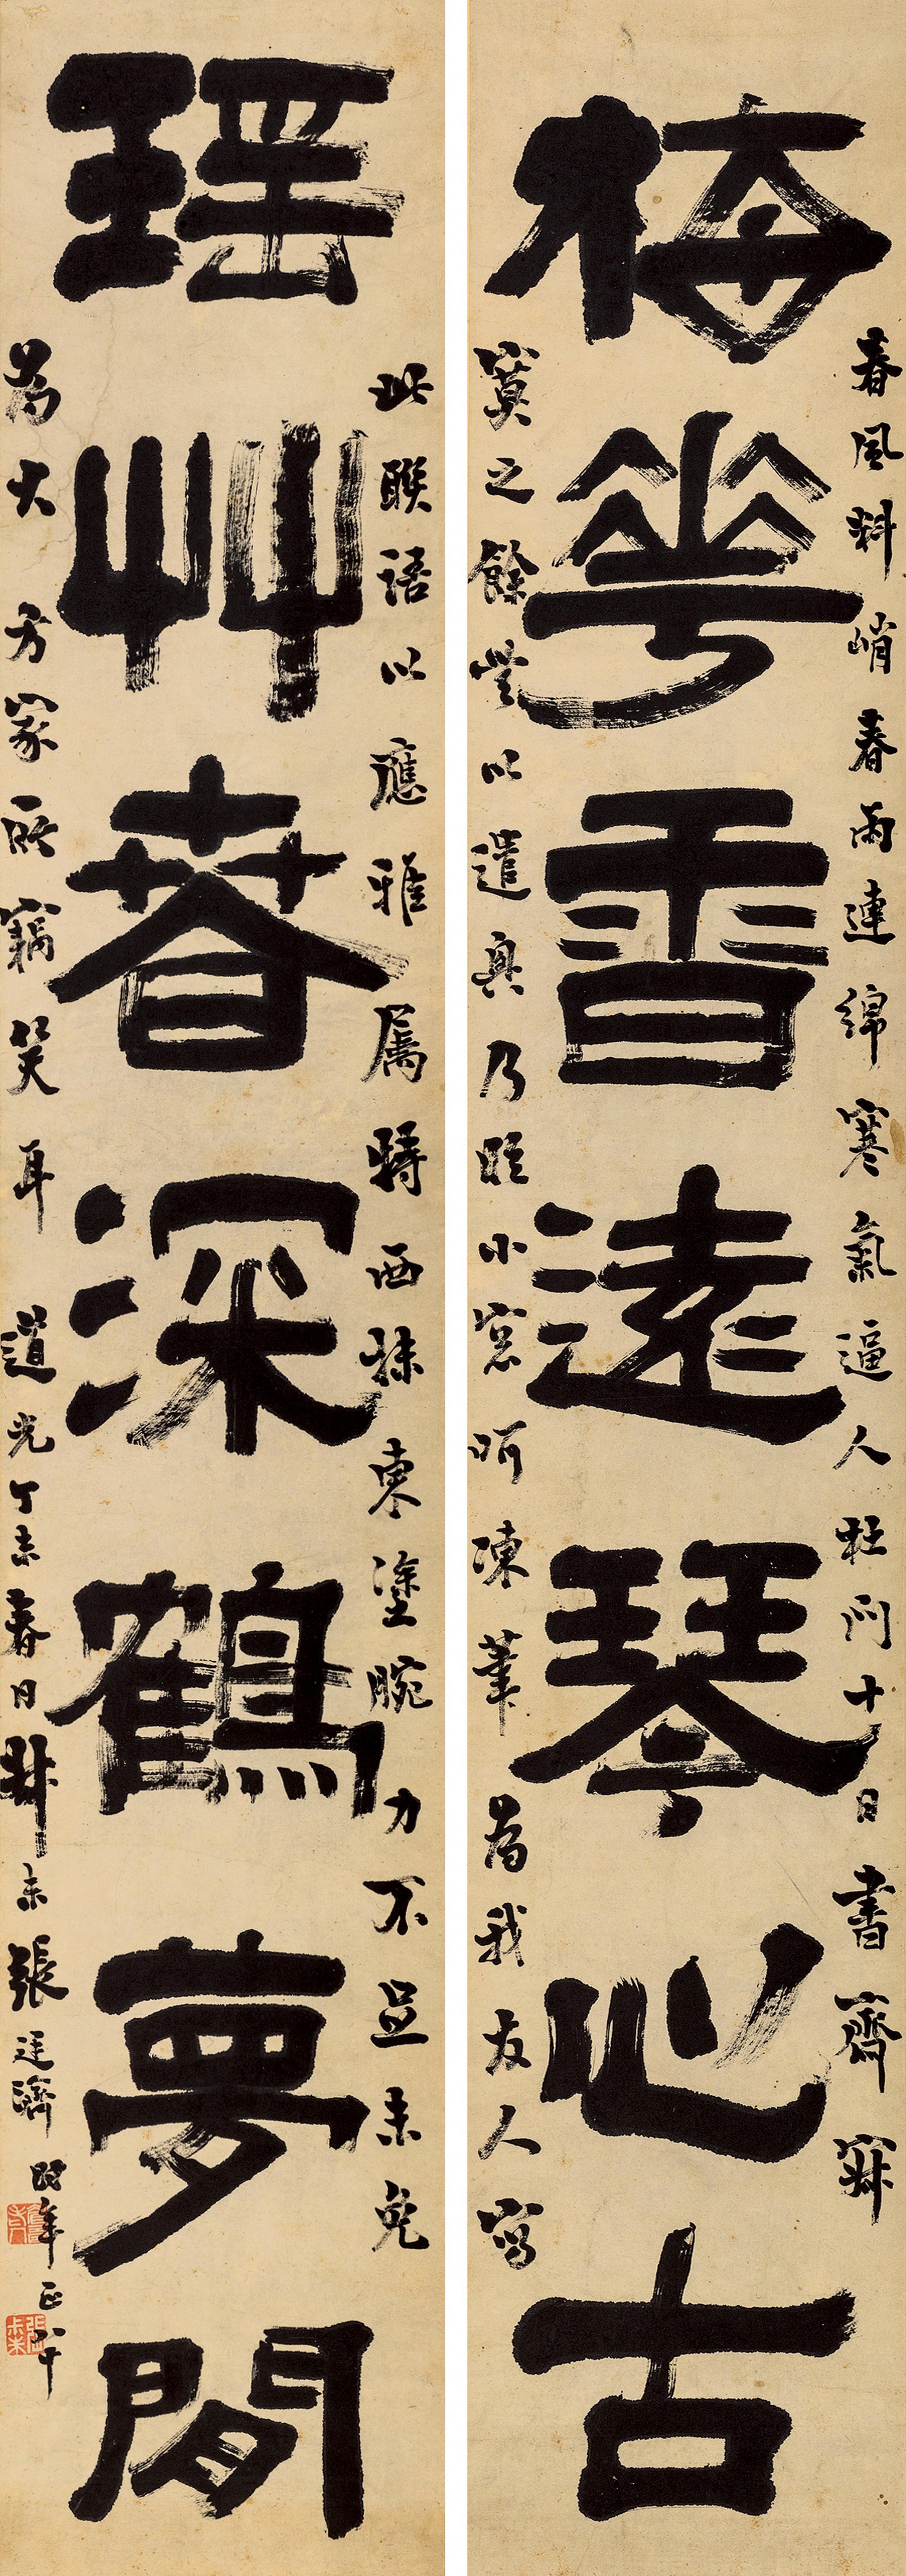 春風料峭春雨連綿寒氣逼人杜門十日書齋寂
梅華香遠琴心古
寞之餘無以遣興乃臨小窓呵凍筆為我友人寫
此聯語以應雅属特西抹東塗腕力不足未免
瑤艸春深鶴夢閒
為大方家所竊笑耳道光丁未春日叔未張廷濟時年正八十